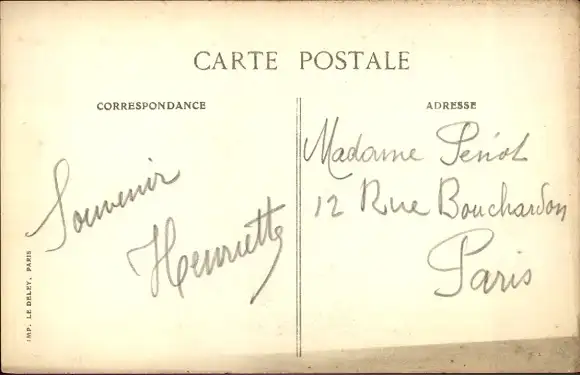 CARTE POSTALE
CORRESPONDANCE
Souvenir
Henriette
IMP. LE DELEY, PARIS
ADRESSE
Madame Péniot
12 Rue Bouchardon
Paris